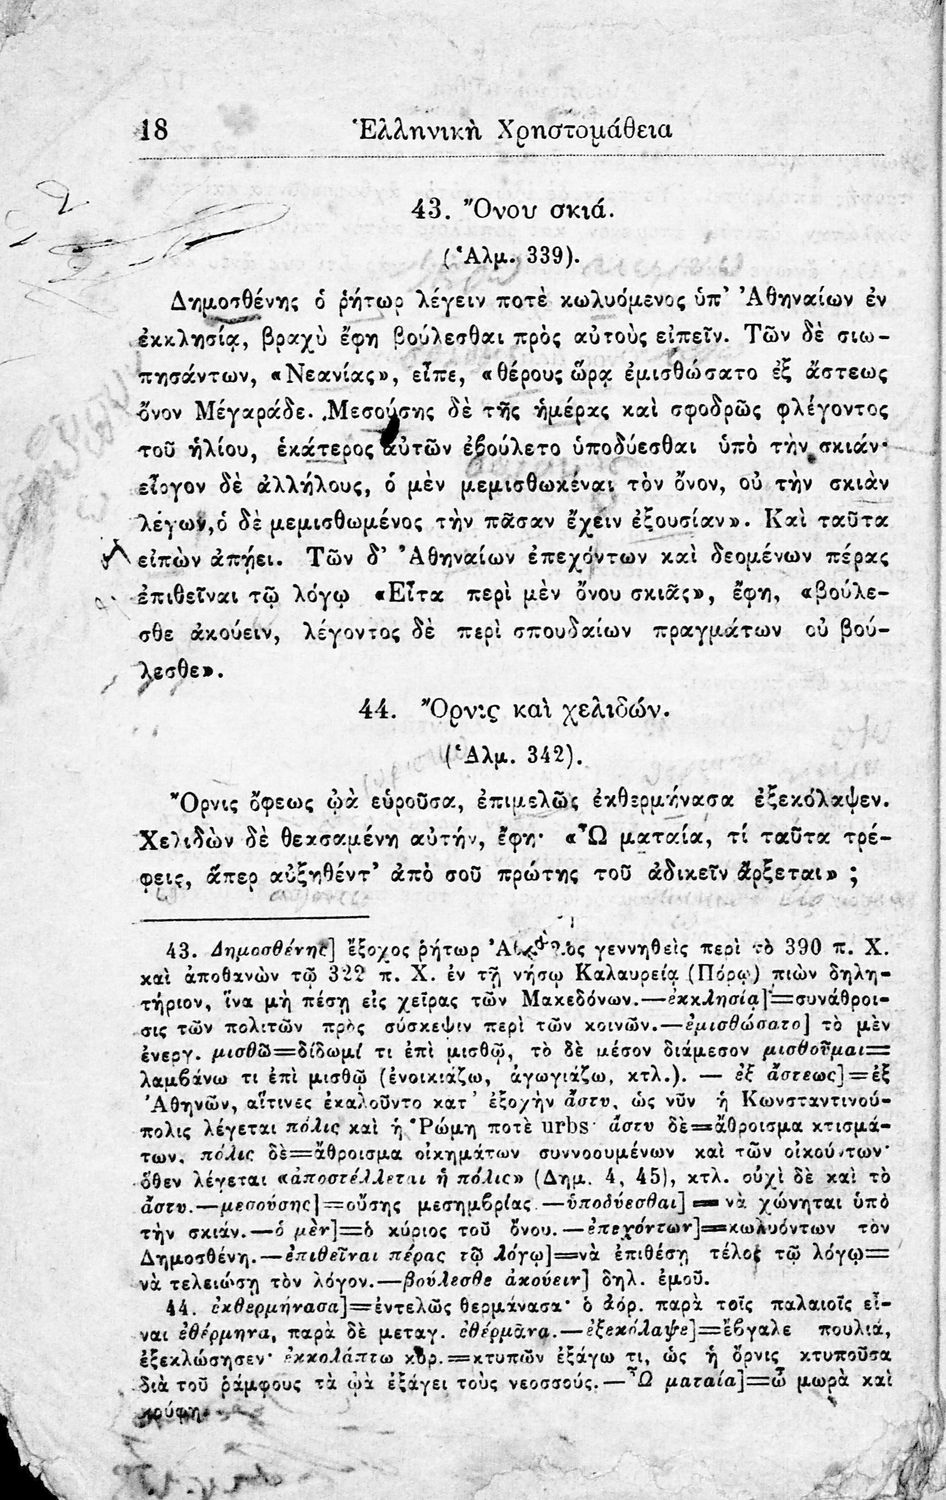 18 Ἑλληνικὴ Χρηστομάθεια
43. Ὄνου σκιά.
(Ἁλμ. 339).
Δημοσθένης ὁ ῥήτωρ λέγειν ποτὲ κωλυόμενος ὑπ’ Ἀθηναίων ἐν
ἐκκλησίᾳ, βραχὺ ἔφη βούλεσθαι πρὸς αὐτοὺς εἰπεῖν. Τῶν δὲ σιω-
πησάντων, «Νεανίας», εἶπε, «θέρους ὥρᾳ ἐμισθώσατο ἐξ ἄστεως
ὄνον Μέγαράδε. Μεσούσης δὲ τῆς ἡμέρας καὶ σφοδρῶς φλέγοντος
τοῦ ἡλίου, ἑκάτερος αὐτῶν ἐβούλετο ὑποδύεσθαι ὑπὸ τὴν σκιάν·
εἶργον δὲ ἀλλήλους, ὁ μὲν μεμισθωκέναι τὸν ὄνον, οὐ τὴν σκιὰν
λέγων, ὁ δὲ μεμισθωμένος τὴν πᾶσαν ἔχειν ἐξουσίαν». Καὶ ταῦτα
εἰπὼν ἀπῄει. Τῶν δ’ Ἀθηναίων ἐπεχόντων καὶ δεομένων πέρας
ἐπιθεῖναι τῷ λόγῳ «Εἶτα περὶ μὲν ὄνου σκιᾶς», ἔφη, «βούλε-
σθε ἀκούειν, λέγοντος δὲ περὶ σπουδαίων πραγμάτων οὐ βού-
λεσθε».
44. Ὄρνις καὶ χελιδών.
(Ἁλμ. 342).
Ὄρνις ὄφεως ᾠὰ εὑροῦσα, ἐπιμελῶς ἐκθερμήνασα ἐξεκόλαψεν.
Χελιδὼν δὲ θεασαμένη αὐτήν, ἔφη· «Ὦ ματαία, τί ταῦτα τρέ-
φεις, ἅπερ αὐξηθέντ’ ἀπὸ σοῦ πρώτης τοῦ ἀδικεῖν ἄρξεται» ;
43. Δημοσθένης] ἔξοχος ῥήτωρ γεννηθεὶς περὶ τὸ 390 π. Χ.
καὶ ἀποθανὼν τῷ 322 π. Χ. ἐν τῇ νήσῳ Καλαυρείᾳ (Πόρῳ) πιὼν δηλη-
τήριον, ἵνα μὴ πέσῃ εἰς χεῖρας τῶν Μακεδόνων.—ἐκκλησίᾳ]=συνάθροι-
σις τῶν πολιτῶν πρὸς σύσκεψιν περὶ τῶν κοινῶν.—ἐμισθώσατο] τὸ μὲν
ἐνεργ. μισθῶ=δίδωμί τι ἐπὶ μισθῷ, τὸ δὲ μέσον διάμεσον μισθοῦμαι=
λαμβάνω τι ἐπὶ μισθῷ (ἐνοικιάζω, ἀγωγιάζω, κτλ.). — ἐξ ἄστεως]=ἐξ
Ἀθηνῶν, αἵτινες ἐκαλοῦντο κατ’ ἐξοχὴν ἄστυ, ὡς νῦν ἡ Κωνσταντινού-
πολις λέγεται πόλις καὶ ἡ Ῥώμη ποτὲ urbs· ἄστυ δὲ=ἄθροισμα κτισμά-
των, πόλις δὲ=ἄθροισμα οἰκημάτων συννοουμένων καὶ τῶν οἰκούντων·
ὅθεν λέγεται «ἀποστέλλεται ἡ πόλις» (Δημ. 4, 45), κτλ. οὐχὶ δὲ καὶ τὸ
ἄστυ.—μεσούσης]=οὔσης μεσημβρίας.—ὑποδύεσθαι]=νὰ χώνηται ὑπὸ
τὴν σκιάν.—ὁ μὲν]=ὁ κύριος τοῦ ὄνου.—ἐπεχόντων]=κωλυόντων τὸν
Δημοσθένη.—ἐπιθεῖναι πέρας τῷ λόγῳ]=νὰ ἐπιθέσῃ τέλος τῷ λόγῳ=
νὰ τελειώσῃ τὸν λόγον.—βούλεσθε ἀκούειν] δηλ. ἐμοῦ.
44. ἐκθερμήνασα]=ἐντελῶς θερμάνασα· ὁ ἀόρ. παρὰ τοῖς παλαιοῖς εἶ-
ναι ἐθέρμηνα, παρὰ δὲ μεταγ. ἐθέρμᾱνα.—ἐξεκόλαψε]=ἔβγαλε πουλιά,
ἐξεκλώσησεν· ἐκκολάπτω κυρ.=κτυπῶν ἐξάγω τι, ὡς ἡ ὄρνις κτυποῦσα
διὰ τοῦ ῥάμφους τὰ ᾠὰ ἐξάγει τοὺς νεοσσούς.—Ὦ ματαία]=ὦ μωρὰ καὶ
κούφη.